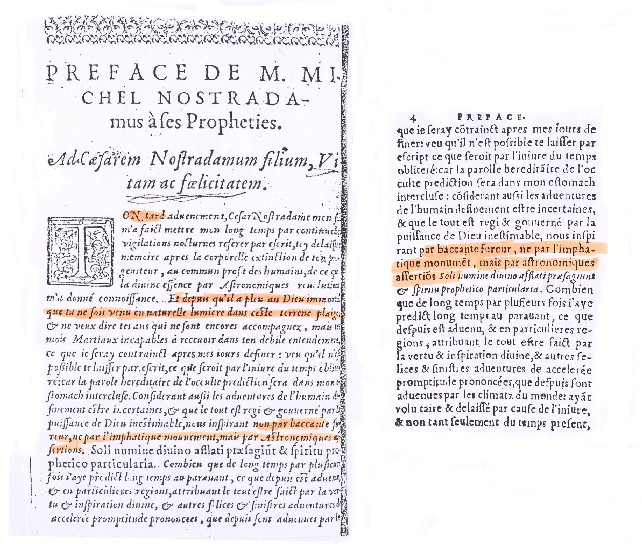 PREFACE DE M. MI-
CHEL NOSTRADA-
mus à ses Propheties.
Ad Cæsarem Nostradamum filium, Vi-
tam ac fœlicitatem.
TON tard aduenement, Cesar Nostradame mon f
m'a faict mettre mon long temps par continuel
vigilations nocturnes referer par escrit, toy delais
memoire apres la corporelle extinction de ton p
geniteur, au commun profit des humains, de ce q
la diuine essence par Astronomiques reuolutions
m'a donné connoissance. Et depuis qu'il a pleu au Dieu immort
que tu ne sois venu en naturelle lumiere dans ceste terrene plaig
& ne veux dire tes ans qui ne sont encores accompaguez, mais t
mois Martiaux incapables à receuoir dans ton debile entendement
ce que ie seray contrainct apres mes iours definer: veu qu'il n'
possible te laisser par escrit, ce que seroit par l'iniure du temps oblit
ré: car la parole hereditaire de l'occulte prediction sera dans mon e
stomach intercluse. Considerant aussi les aduentures de l'humain de
finement estre incertaines, & que le tout est regi & gouuerné par l
puissance de Dieu inestimable, nous inspirant non par baccante fu
reur, ne par l'imphatique mouuement, mais par Astronomiques as
sertions. Soli numine diuino afflati præsagiūt & spiritu pro
phetico particularia. Combien que de long temps par plusieu
fois i'aye predict long temps au parauant, ce que depuis est aduenu
& en particulieres regions, attribuant le tout estre faict par la ver
tu & inspiration diuine, & autres felices & sinistres aduentures
accelerée promptitude prononcees, que depuis sont aduenues par l
4 PREFACE.
que ie seray cōtrainct apres mes iours de
finer: veu qu'il n'est possible te laisser par
escript ce que seroit par l'iniure du temps
obliteré: car la parole heredi­taire de l'oc
culte prediction sera dans mon estomach
intercluse: cōsiderant aussi les aduentures
de l'humain definement estre incertaines,
& que le tout est regi & gouuerné par la
puissance de Dieu inestimable, nous inspi
rant par baccante fureur, ne par l'impha-
tique monumēt, mais par astronomiques
assertiōs Soli numine diuino afflati præsagiunt
& spiritu prophetico particularia. Combien
que de long temps par plusieurs fois i'aye
predict long temps au parauant, ce que
depuis est aduenu, & en particulieres re-
gions, attribuant le tout estre faict par
la vertu & inspiration diuine, & autres fe-
lices & sinistres aduentures de acceleree
promptitude prononcées, que depuis sont
aduenues par les climatz du monde: ayāt
volu taire & delaissé par cause de l'iniure,
& non tant seulement du temps present,